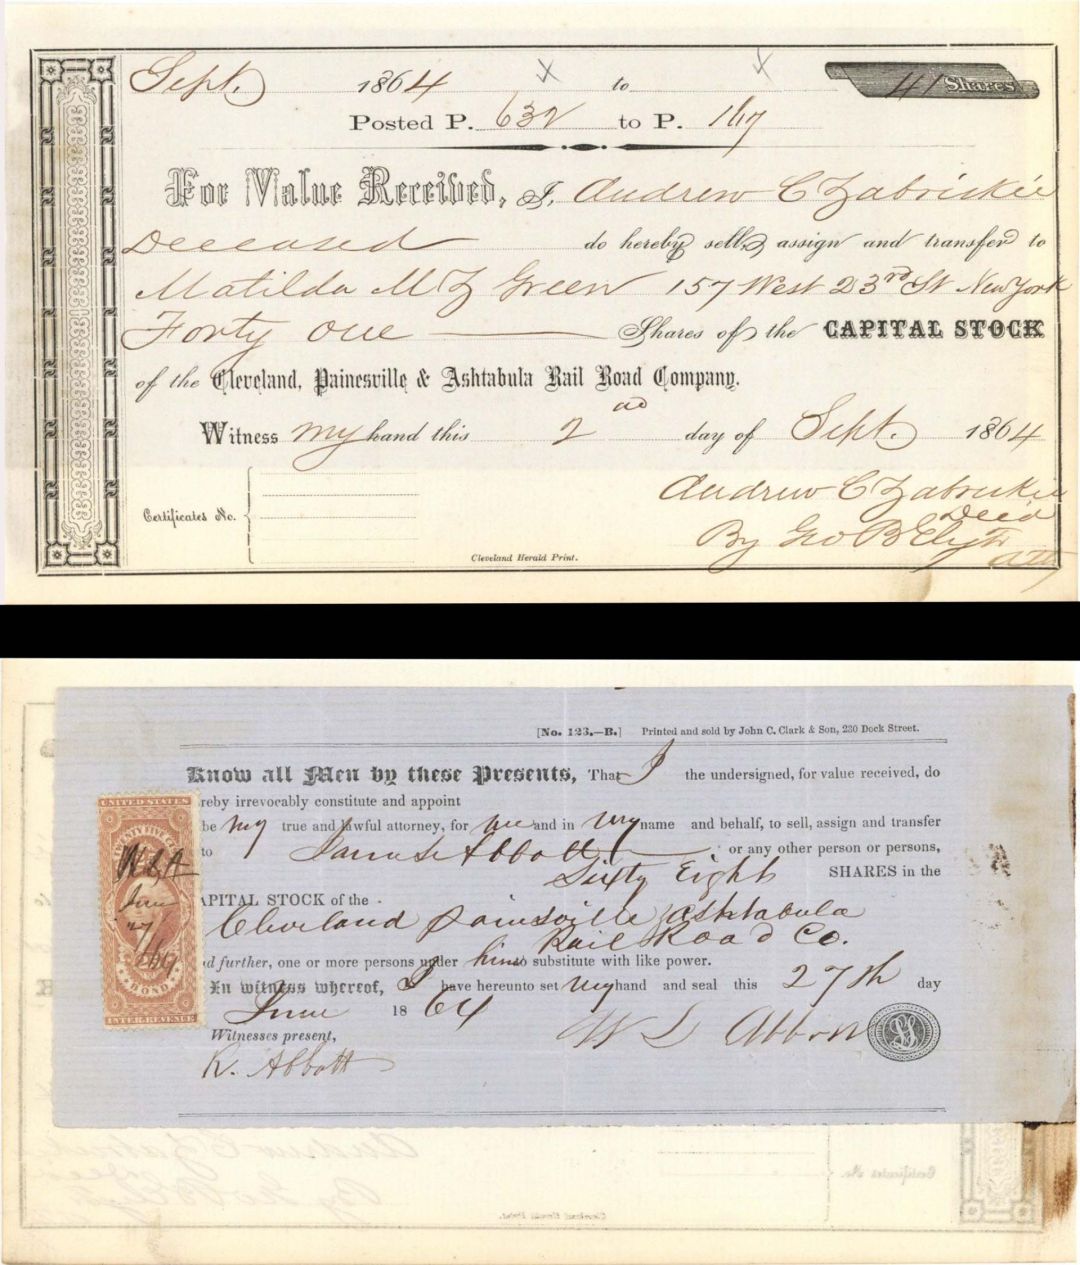 Sept. 1864 to 41 Shares
Posted P. 632 to P. 167
For Value Received, I, Andrew C Zabriskie
Deceased do hereby sell, assign and transfer to
Matilda M Z Green 157 West 23rd St New York
Forty one Shares of the CAPITAL STOCK
of the Cleveland, Painesville & Ashtabula Rail Road Company.
Witness my hand this 2nd day of Sept. 1864
Andrew C Zabriskie
Decd
By Geo B Ely
Atty
Certificates No.
Cleveland Herald Print.
[No. 123.—B.] Printed and sold by John C. Clark & Son, 230 Dock Street.
Know all Men by these Presents, That I the undersigned, for value received, do
reby irrevocably constitute and appoint
be my true and lawful attorney, for me and in my name and behalf, to sell, assign and transfer
to James Abbott or any other person or persons,
Sixty Eight SHARES in the
APITAL STOCK of the
Cleveland Painsville Ashtabula
Rail Road Co.
d further, one or more persons under him to substitute with like power.
In witness whereof, I have hereunto set my hand and seal this 27th day
June 1864
Witnesses present,
R. Abbott
W L Abbott
UNITED STATES
TWENTY FIVE
W L A
June
27
BOND
INTER. REVENUE
Certificates No.
Cleveland Herald Print.